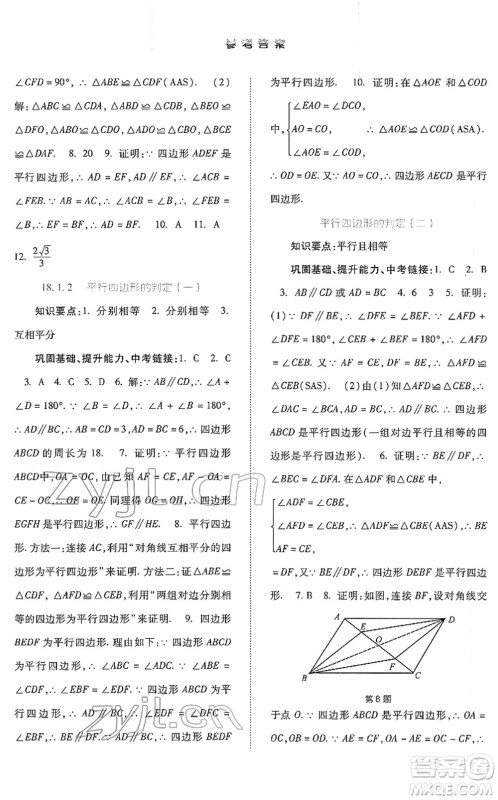 参考答案
∠CFD=90°,∴△ABE≌△CDF(AAS). (2)
解:△ABC≌△CDA,△ABD≌△CDB,△BEO≌
△DFO,△ABO≌△CDO,△AOD≌△COB,△BCE
≌△DAF. 8. 20 9. 证明:∵四边形ADEF是
平行四边形,∴AD=EF,AD∥EF,∴∠ACB=
∠FEB. ∵AB=AC,∴∠ACB=∠B. ∴∠FEB=
∠B. ∴EF=BF,∴AD=BF. 10. A 11. A
12. 2√3/3
18.1.2 平行四边形的判定(一)
知识要点:1. 分别相等 2. 分别相等 3.
互相平分
巩固基础、提升能力、中考链接:1. C 2. C
3. A 4. C 5. 证明:∵AB∥CD,∴∠A+
∠D=180°. ∵∠B=∠D,∴∠A+∠B=180°,
∴AD∥BC. ∵AB=CD=3,AD=BC=6,∴四边形
ABCD的周长为18. 7. 证明:∵平行四边形
ABCD中,OA=OC,由已知AF=CE,AF-OA=
CE-OC,∴OF=OE 同理得OG=OH,∴四边形
EGFH是平行四边形,∴GF∥HE. 8. 平行四边
形. 方法一:连接AC,利用“对角线互相平分的四
边形为平行四边形”来证明. 方法二:证△ABE≌
△CDF,△ADE≌△CBF,利用“两组对边分别相
等的四边形为平行四边形”来证明. 9. 四边形
BEDF为平行四边形. 证明:∵四边形ABCD为
平行四边形,∴∠ABC=∠ADC. ∵∠ABF=
∠CDE,∴∠EBF=∠EDF. ∵四边形ABCD为
平行四边形,∴AD∥BC,∴∠EDF=∠DEC=
∠EBF,∴BF∥DE. ∵BE∥DF,∴四边形BEDF
为平行四边形. 10. 证明:在△AOE和△COD
中,{∠EAO=∠DCO, AO=CO, ∠AOE=∠COD, ∴△AOE≌△COD(ASA).
∴OD=OE. ∵AO=CO,∴四边形AECD是平行
四边形.
平行四边形的判定(二)
知识要点:平行且相等
巩固基础、提升能力、中考链接:1. C 2. B
3. AB∥CD或AD=BC 4. 3 5. 证明:
(1)∵DF∥BE,∴∠AFD=∠CEB. ∵∠AFD=
∠CEB,DF=BE,AF=CE,∴△AFD≌
△CEB(SAS). (2)由△AFD≌△CEB,∴
∠DAC=∠BCE,AD=BC,∴AD∥BC,∴四边形
ABCD是平行四边形(一组对边平行且相等的四
边形为平行四边形). 6. 证明:∵BE∥DF,∴
∠AFD=∠CEB. 在△ADF和△CBE中,
{∠ADF=∠CBE, ∠AFD=∠CEB, AF=CE, ∴△ADF≌△CBE(AAS),∴BE
=DF. ∵BE∥DF,∴四边形DEBF是平行四边
形. 7. B 8. 证明:连接BD,BF,设对角线交
A
D
E
O
F
B
C
第8题
于点O. ∵四边形ABCD是平行四边形,∴OA=
OC,OB=OD. ∵AE=CF,OA-AE=OC-CF,
zyjl.cn
zyjl.cn
答案圈
MXQE.COM